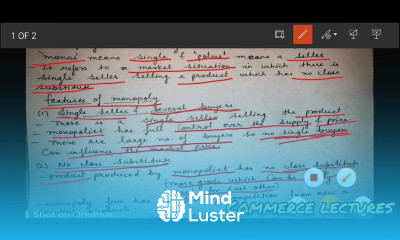 1 OF 2
'monos' means single & 'polus' means a seller
It refers to a market situation in which there is
single seller selling a product which has no close
substitute
features of monopoly
(1) Single seller & several buyers
- There is a single seller selling the product
- monopolist has full control over the supply & price
- There are large no. of buyers so no single buyer
can influence the market price
(2) No close substitute
- product produced by monopolist has no close substitute
(those goods which can be
each other)
- monopoly firm has competition from new
Shot on OnePlus
Mind
Luster
COMMERCE LECTURES